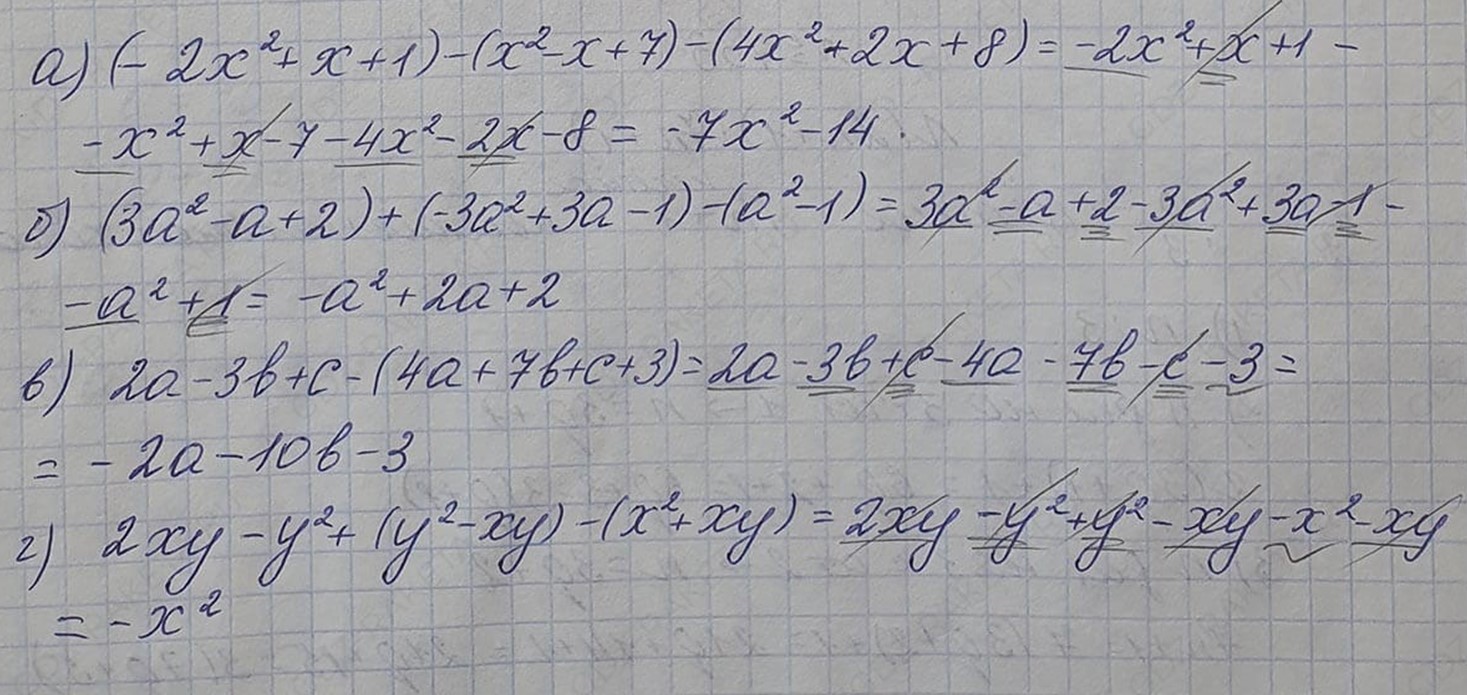 а) (- 2x²+ x+1)-(x²-x+7)-(4x²+2x+8)= -2x²+x+1 -
-x²+x-7-4x²-2x-8= -7x²-14.
б) (3a²-a+2)+(-3a²+3a-1)-(a²-1)=3a²-a+2-3a²+3a-1-
-a²+1= -a²+2a+2
в) 2a-3b+c-(4a+7b+c+3)=2a-3b+c-4a-7b-c-3=
= -2a-10b-3
г) 2xy-y²+(y²-xy)-(x²+xy)=2xy-y²+y²-xy-x²-xy
= -x²